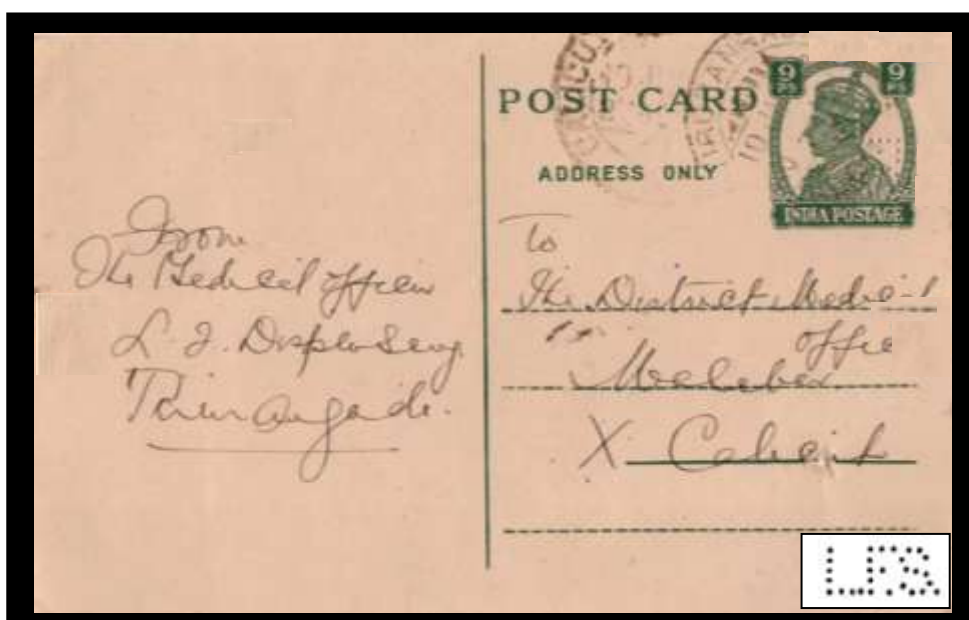 POST CARD
9 9
Ps Ps
ADDRESS ONLY
INDIA POSTAGE
From
The Medical Officer
L. F. Dispensary
Tirurangadi.
To
The District Medical
Office
Malabar
X Calicut
L.F.S.